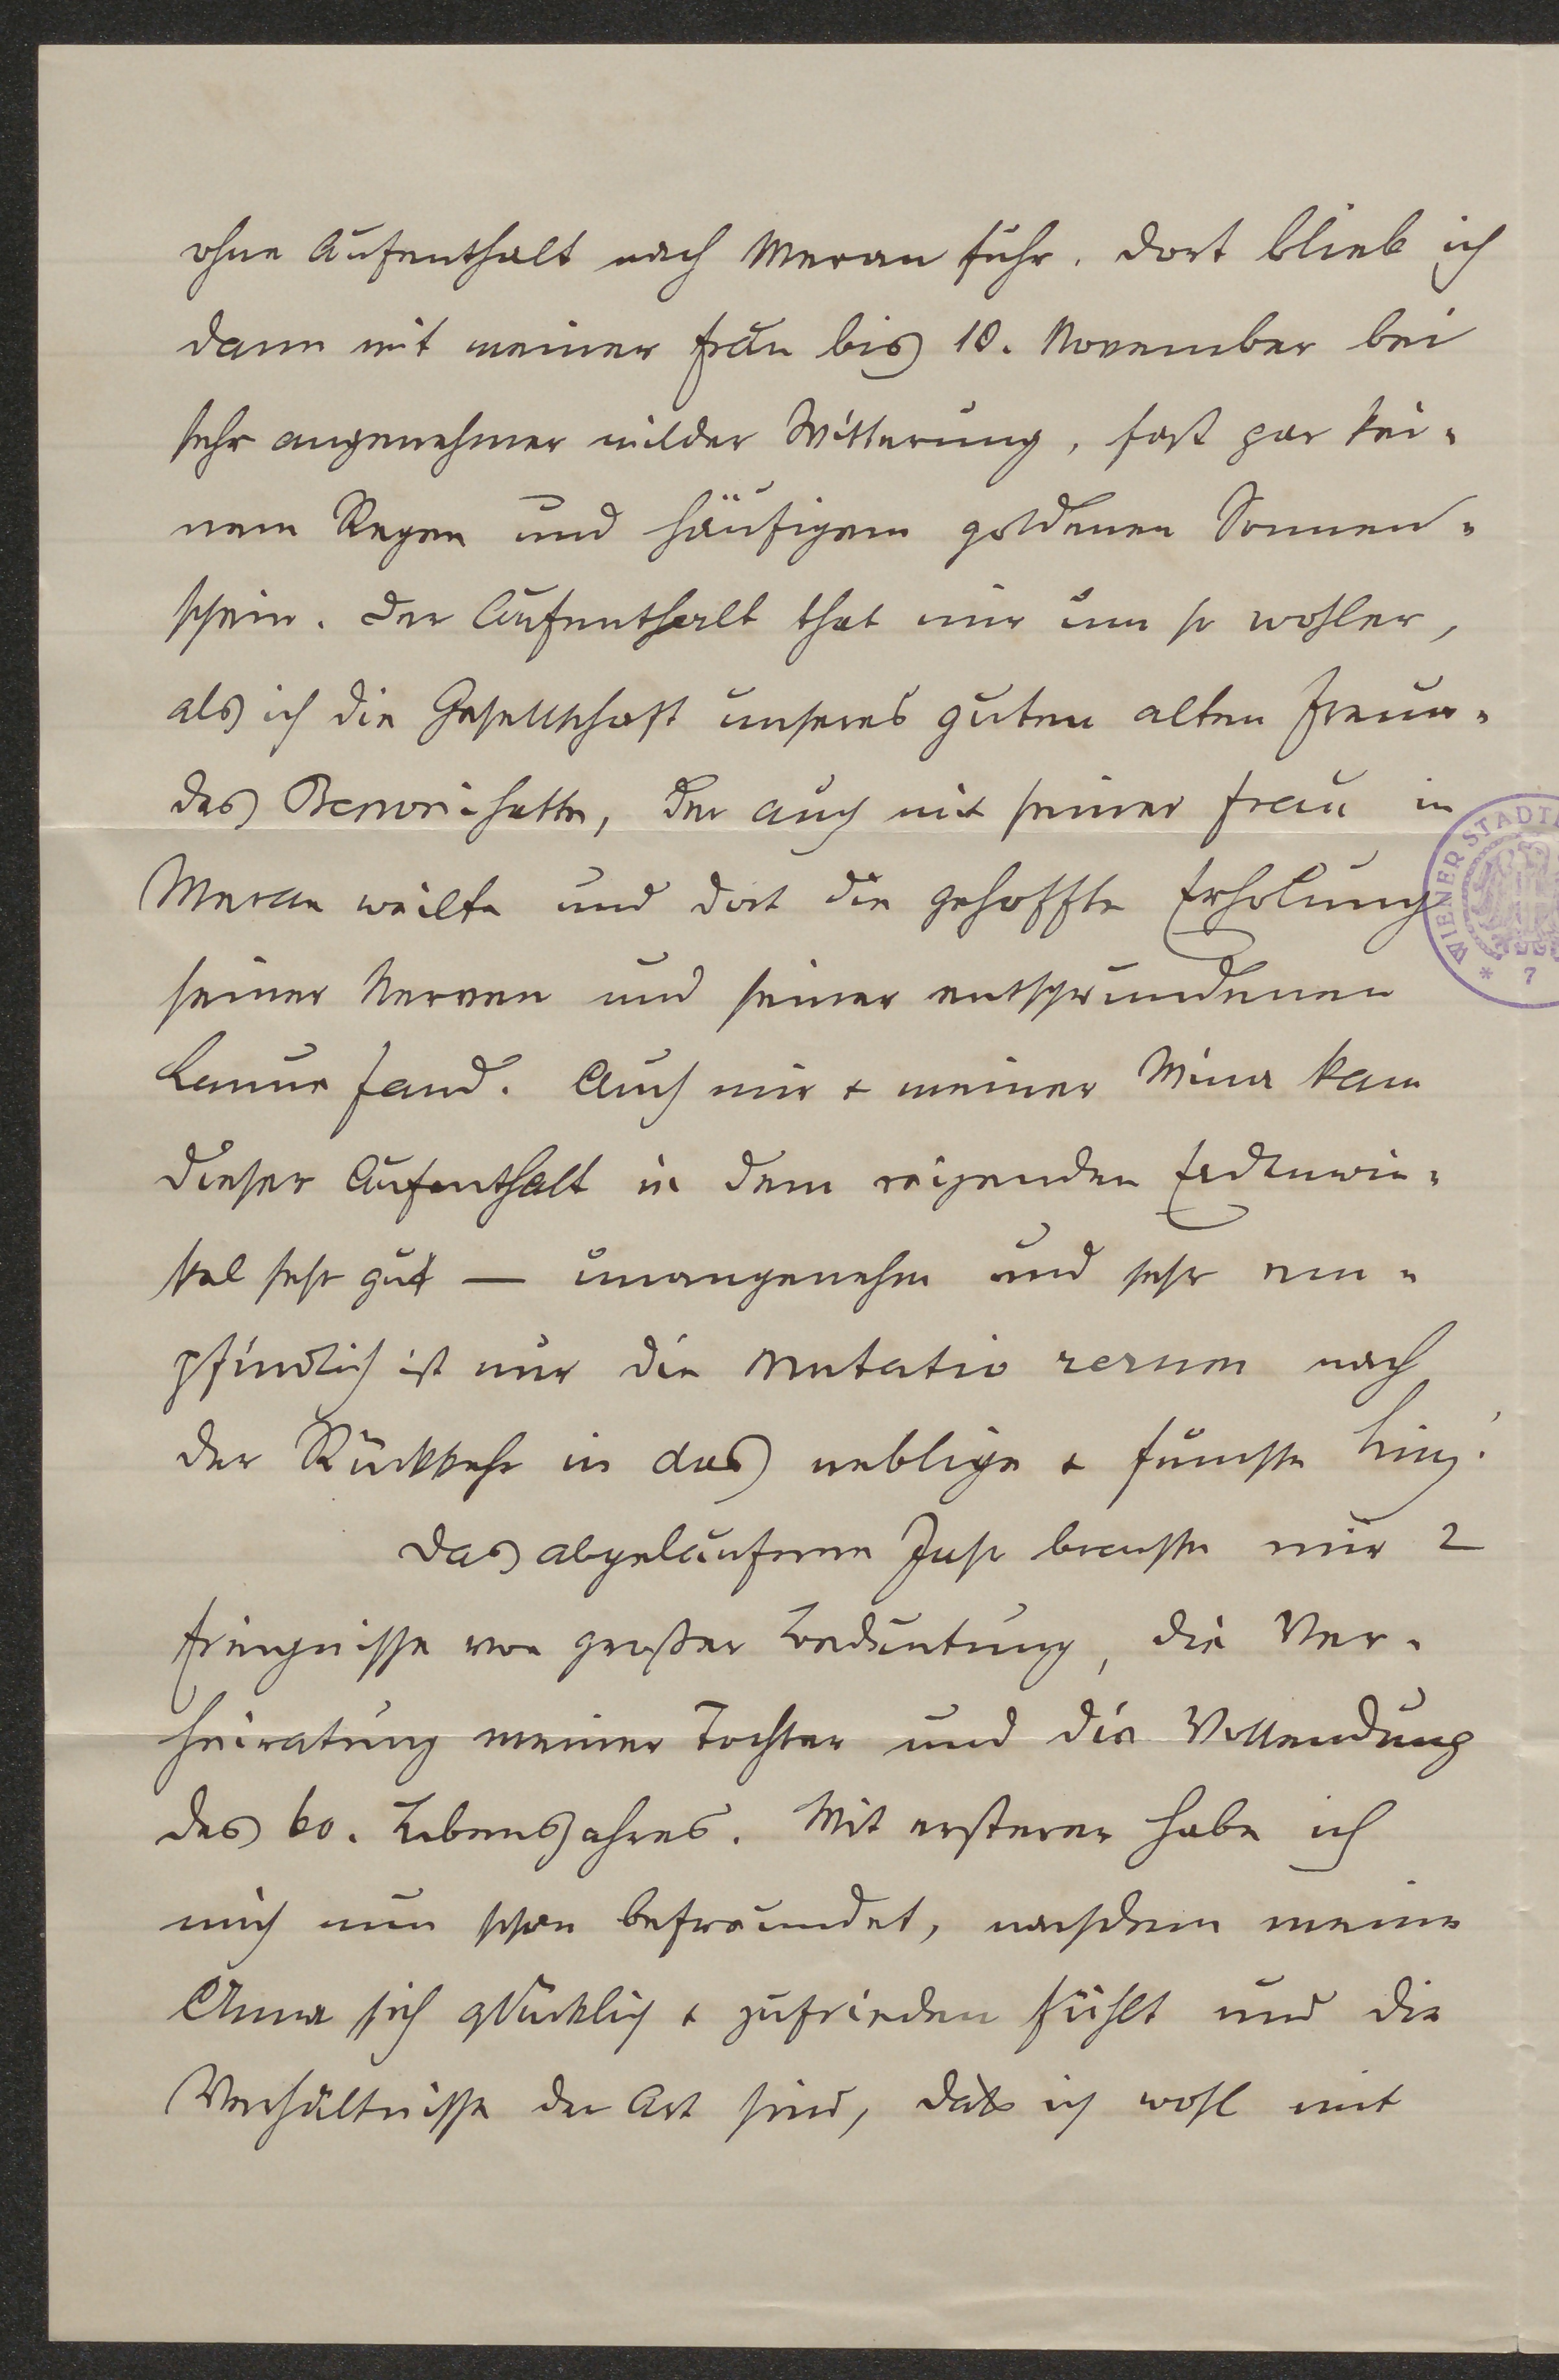 ohne Aufenthalt nach Meran fuhr. Dort blieb ich
dann mit meiner Frau bis 10. November bei
sehr angenehmer milder Witterung, fast gar kei-
nem Regen und häufigem goldenen Sonnen-
schein. Der Aufenthalt that mir um so wohler,
als ich die Gesellschaft unseres guten alten Freun-
des hatte, der auch mit seiner Frau in
Meran weilte und dort die gehoffte Erholung
seiner Nerven und seiner entschwundenen
Laune fand. Auch mir + meiner Mina kam
dieser Aufenthalt in dem reizenden Erdenwin-
kel sehr gut — unangenehm und sehr em-
pfindlich ist nur die mutatio rerum nach
der Rückkehr in das neblige + feuchte Linz!
Das abgelaufene Jahr brachte mir 2
Ereignisse von großer Bedeutung, die Ver-
heiratung meiner Tochter und die Vollendung
des 60. Lebensjahres. Mit ersterer habe ich
mich nun schon befreundet, nachdem meine
Anna sich glücklich + zufrieden fühlt und die
Verhältnisse der Art sind, daß ich wohl mit
WIENER STADT
* 7